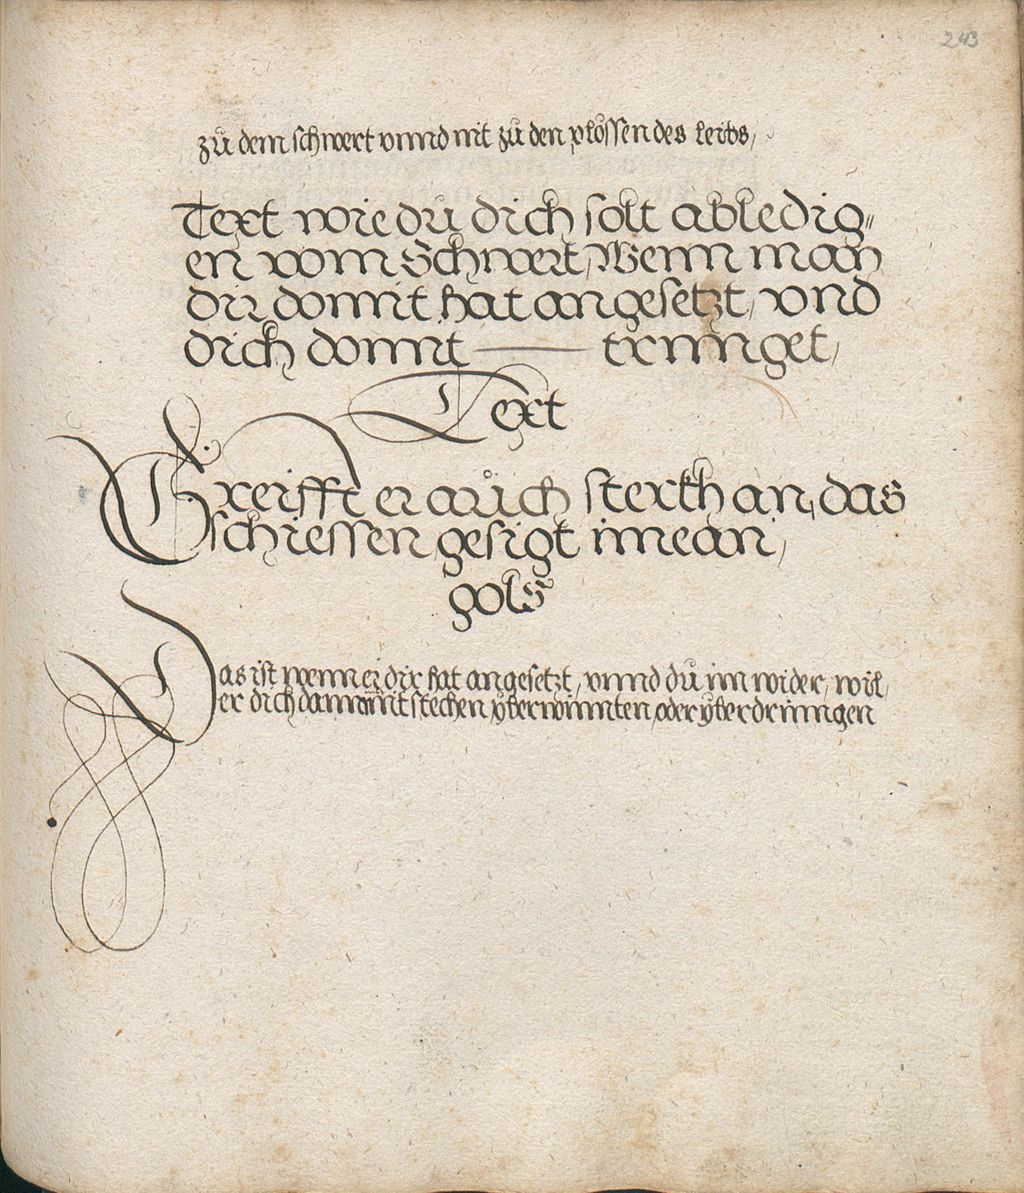 243
zů dem schwert vnnd nit zů den plössen des leibs,
Text wie dů dich solt abledig„
en vom Schwert, Wenn man
dir domit hat angesetzt, vnd
dich domit — tringet,
Text
Greifft er aůch sterkh an, das
schiessen gesigt ime an,
gols
Das ist wenn er dir hat angesetzt, vnnd dů im wider, wil,
er dich dann mit stechen yberwinnten, oder yberdrinngen